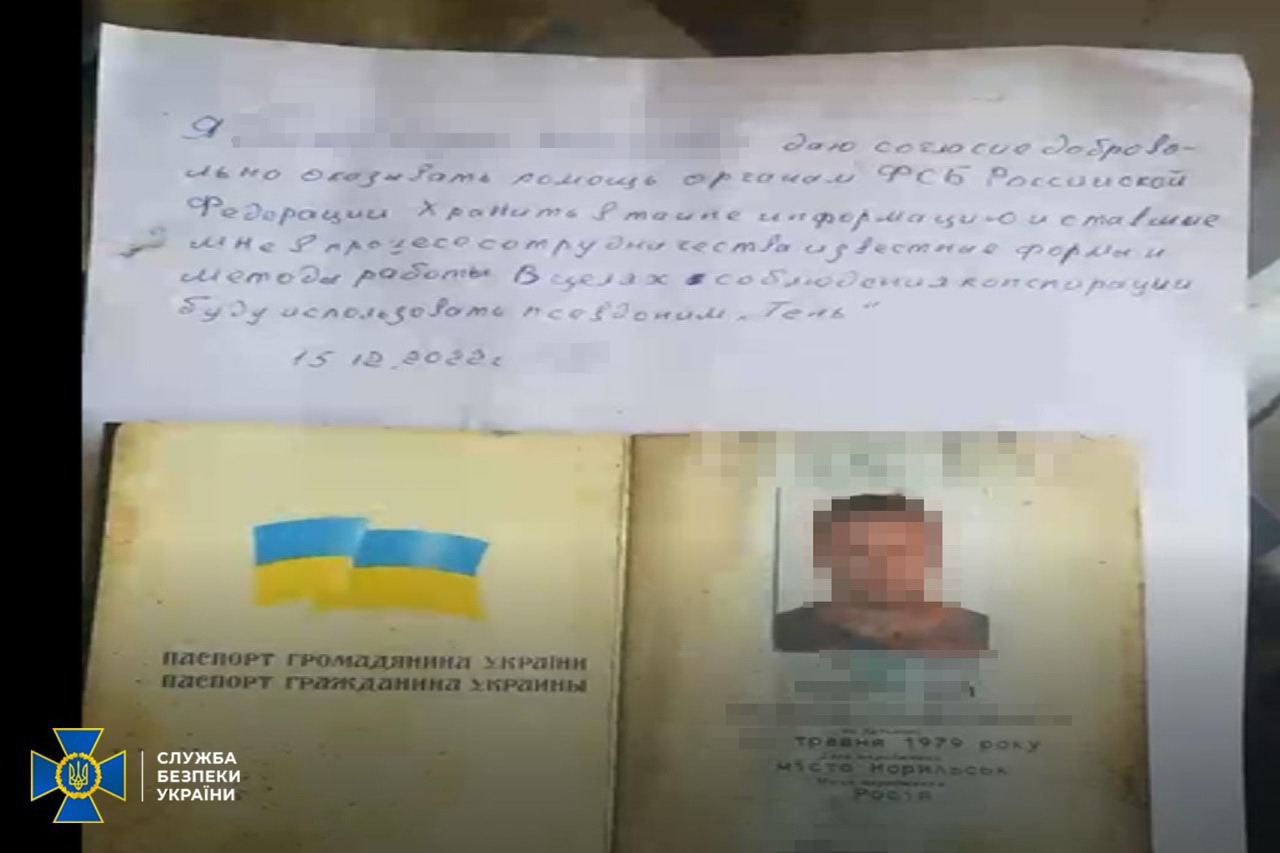 Я даю согласие доброво-
льно оказывать помощь органам ФСБ Российской
Федерации Хранить в тайне информацию и ставшие
мне в процесе сотрудничества известные формы и
методы работы В целях соблюдения конспирации
буду использовать псевдоним „Тень"
15 12.2022г
ПАСПОРТ ГРОМАДЯНИНА УКРАЇНИ
ПАСПОРТ ГРАЖДАНИНА УКРАИНЫ
травня 1979 року
місто Норильськ
Росія
СЛУЖБА
БЕЗПЕКИ
УКРАЇНИ